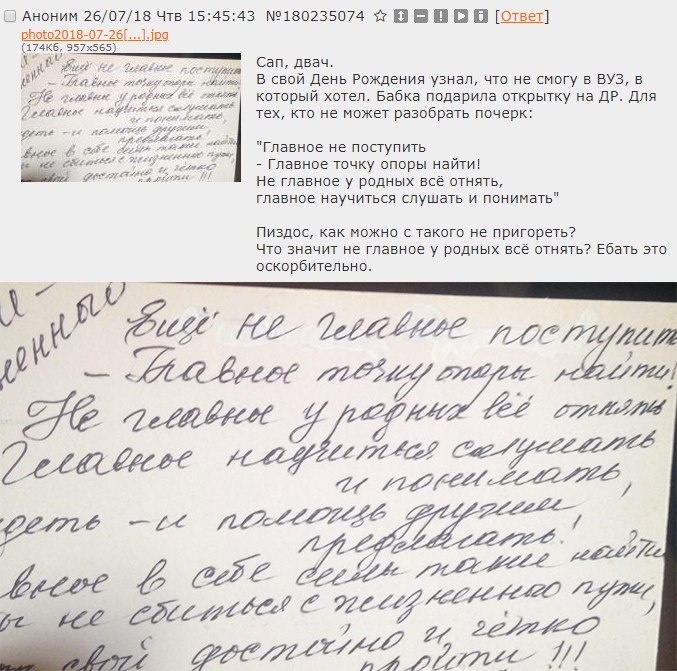 Аноним 26/07/18 Чтв 15:45:43 №180235074 [Ответ]
photo2018-07-26[...].jpg
(174Кб, 957x565)
Сап, двач.
В свой День Рождения узнал, что не смогу в ВУЗ, в
который хотел. Бабка подарила открытку на ДР. Для
тех, кто не может разобрать почерк:
"Главное не поступить
- Главное точку опоры найти!
Не главное у родных всё отнять,
главное научиться слушать и понимать"
Пиздос, как можно с такого не пригореть?
Что значит не главное у родных всё отнять? Ебать это
оскорбительно.
енный
Ещё не главное поступить
- Главное точку опоры найти!
Не главное у родных всё отнять
Главное научиться слушать
и понимать,
деть - и помощь другим
предлагать!
вное в себе силы также найти
ы не сбиться с жизненного пути,
свой достойно и чётко
пройти!!!